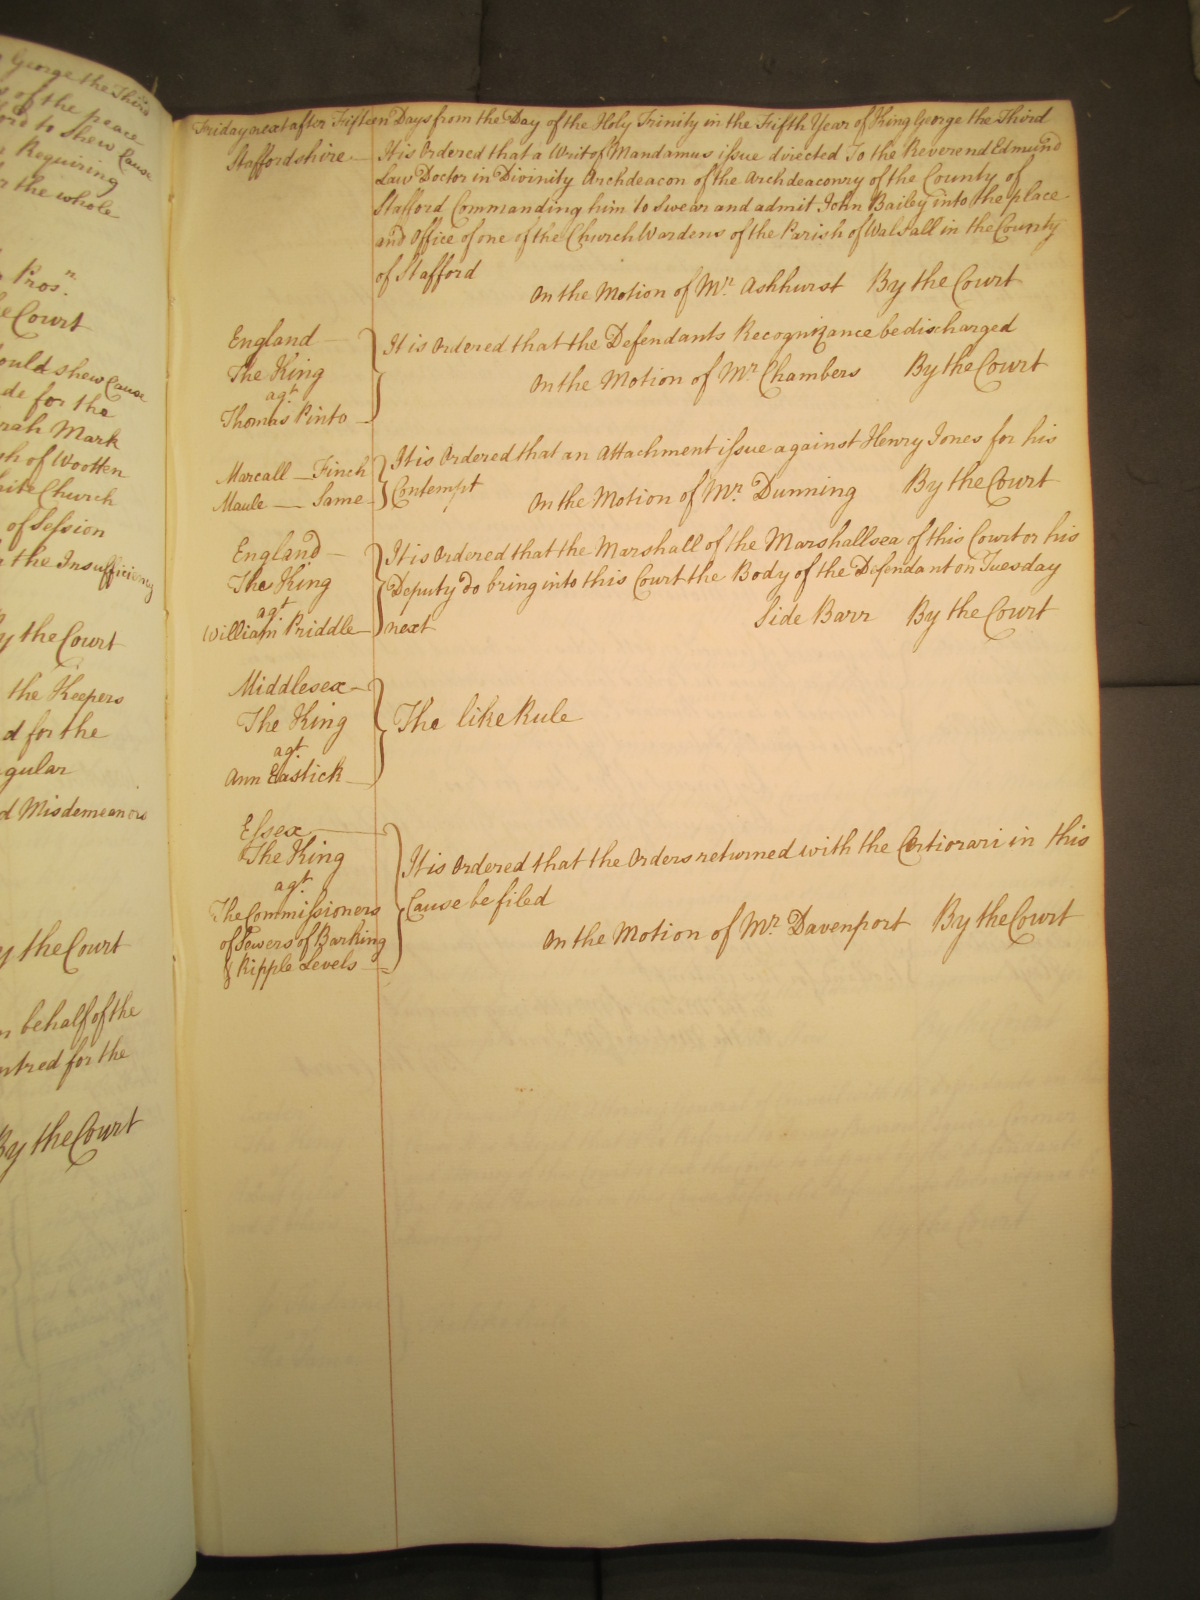 George the Third
of the peace
ord to shew Cause
Requiring
r the whole
Pros.n
e Court
ould shew Cause
de for the
rah Mark
sh of Wootten
hite Church
of Session
the Insufficiency
y the Court
the Keepers
d for the
gular
d Misdemeanors
y the Court
n behalf of the
ntred for the
By the Court
Friday next after Fifteen Days from the Day of the Holy Trinity in the Fifth Year of King George the Third
Staffordshire It is Ordered that a Writ of Mandamus issue directed To the Reverend Edmund
Law Doctor in Divinity Archdeacon of the Archdeaconry of the County of
Stafford Commanding him to Swear and admit John Bailey into the place
and Office of one of the Church Wardens of the Parish of Walsall in the County
of Stafford
On the Motion of Mr. Ashhurst By the Court
England
The King
agt.
Thomas Pinto
It is Ordered that the Defendants Recognizance be discharged
On the Motion of Mr. Chambers By the Court
Marcall — Finch
Maule — Same
It is Ordered that an Attachment issue against Henry Jones for his
Contempt
On the Motion of Mr. Dunning By the Court
England
The King
agt.
William Priddle
It is Ordered that the Marshall of the Marshallsea of this Court or his
Deputy do bring into this Court the Body of the Defendant on Tuesday
next
Side Barr By the Court
Middlesex
The King
agt.
Ann Eastick
The like Rule
Essex
The King
agt.
The Commissioners
of Sewers of Barking
& Ripple Levels
It is Ordered that the Orders returned with the Certiorari in this
Cause be filed
On the Motion of Mr. Davenport By the Court